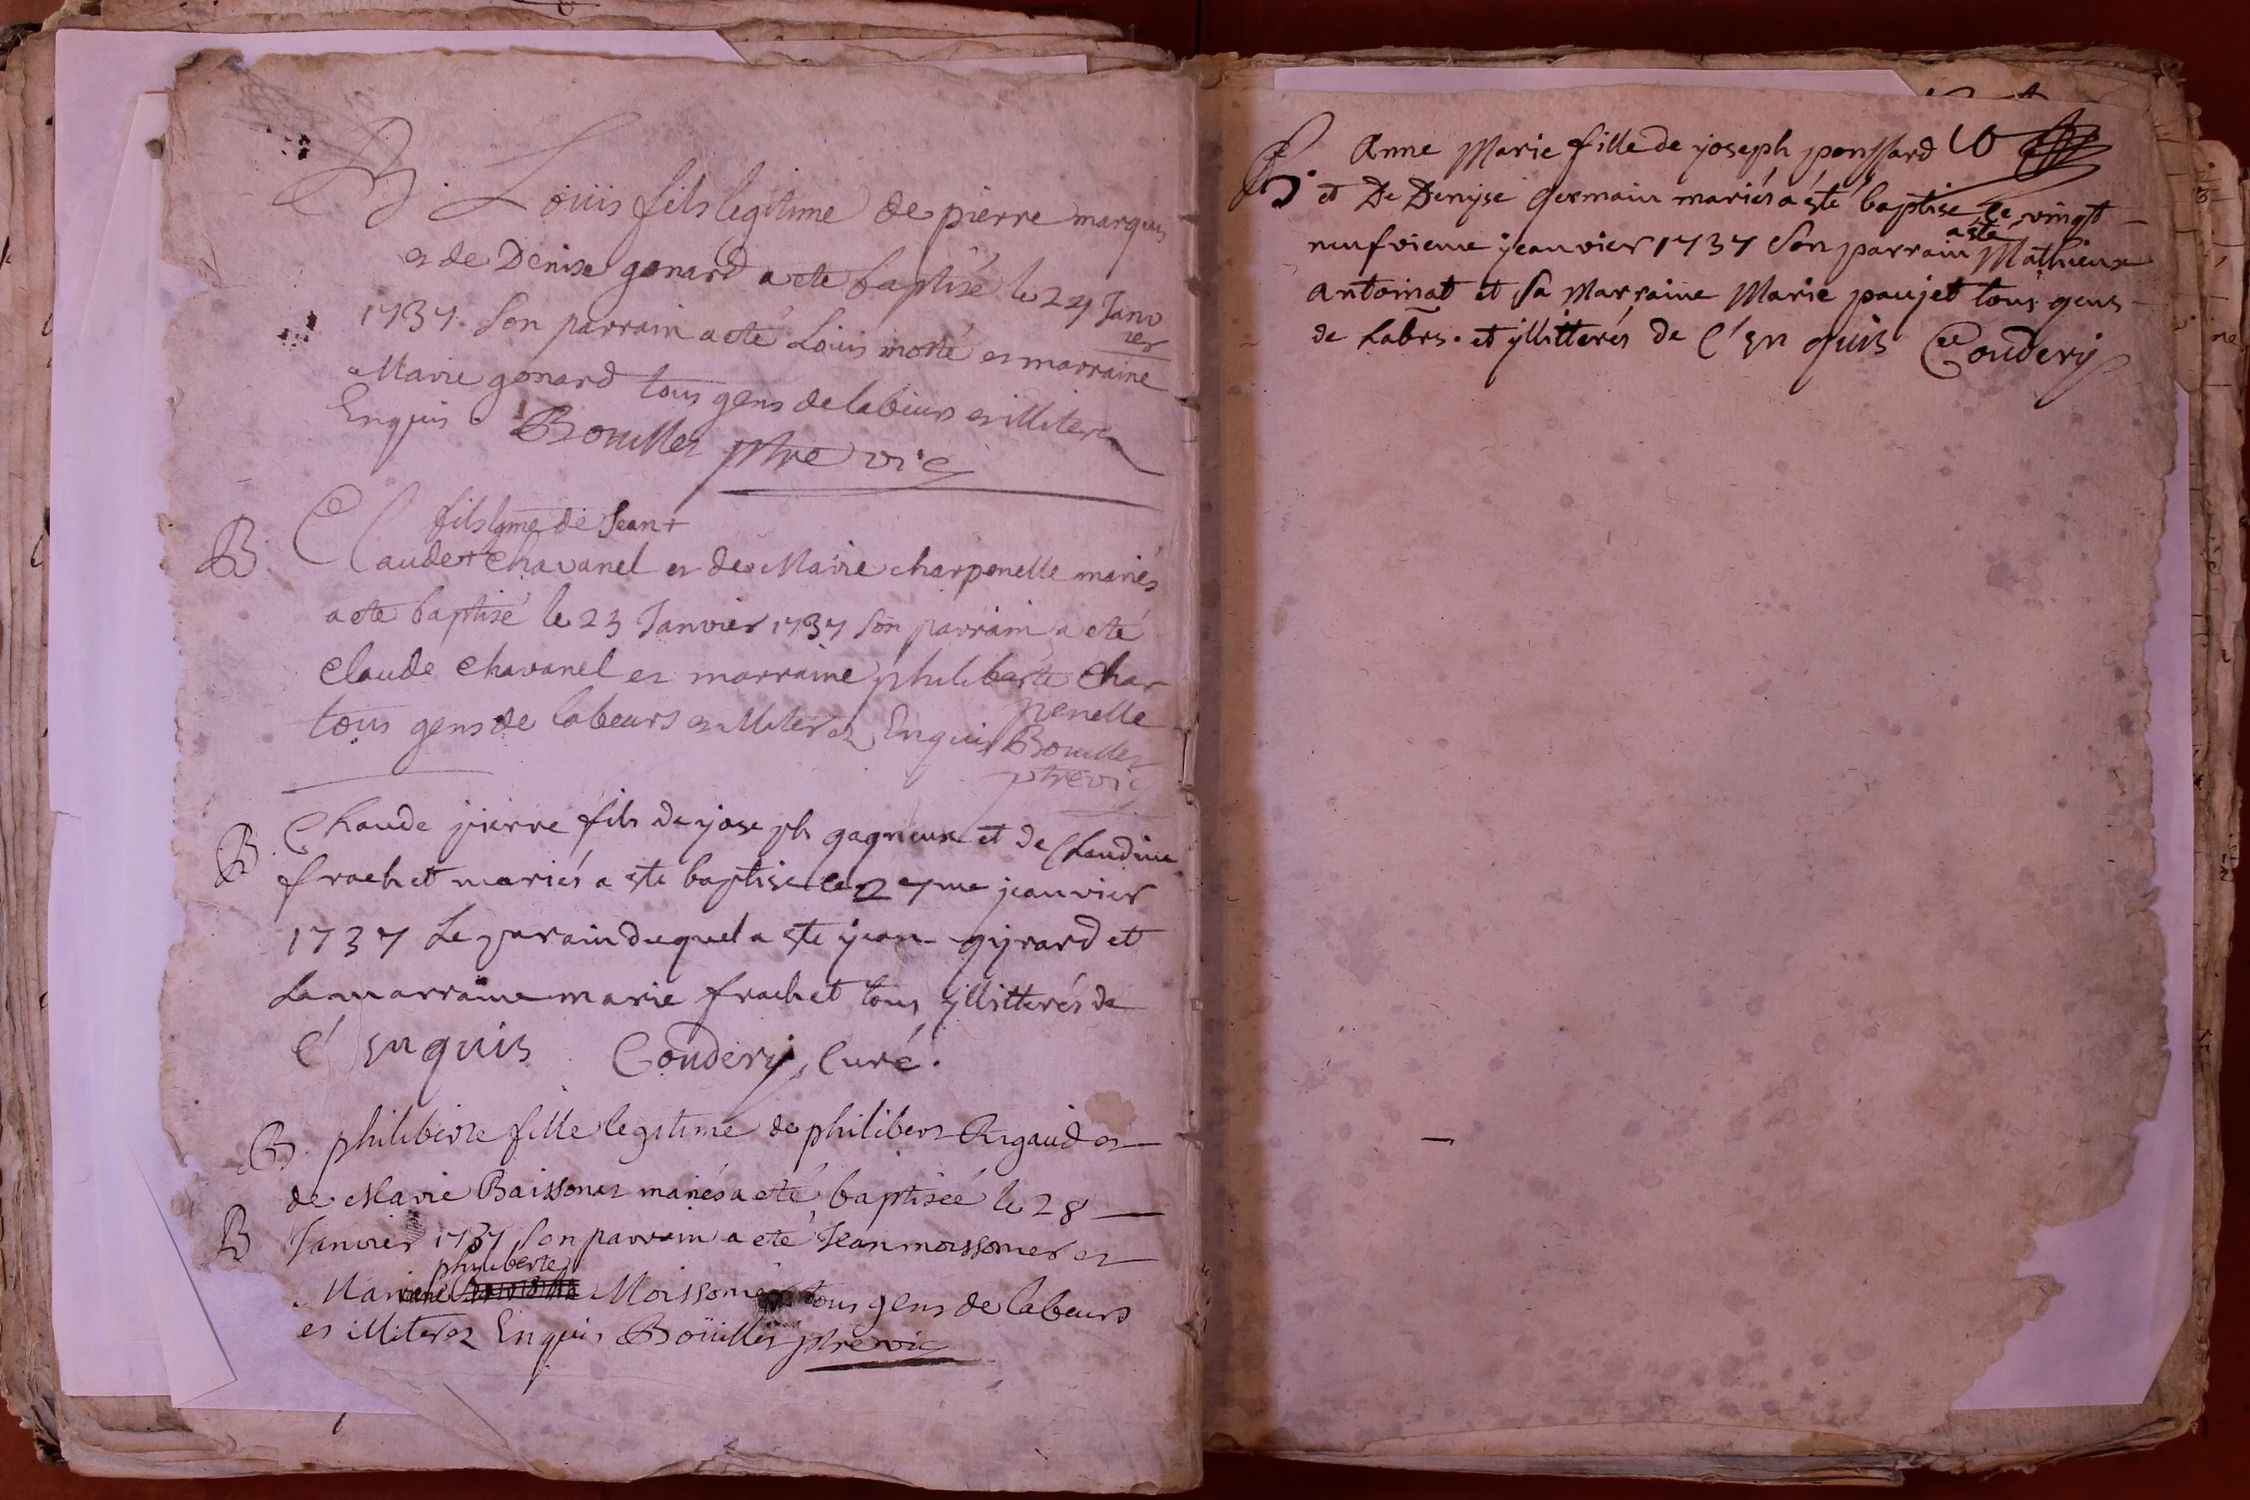 B. Loüis fils legitime de pierre marquis
et de Denise gonard a ete baptisé le 24 Janv
ier
1737. Son parrain a eté Loüis et marraine
Marie gonard tous gens de labeurs et illiterez
Enquis Bouillet ptre vic
fils lgme de Jean +
B. Claude + Chavanel et de Marie charpenelle mariés
a eté baptisé le 23 Janvier 1737 Son parrain a eté
Claude Chavanel et marraine philiberte Char
penelle
tous gens de labeurs et illiterez Enquis Bouillet
ptre vic
B. Claude pierre fils de joseph gagneux et de Claudine
frachet mariés a este baptise le 27me jeanvier
1737 Le parain duquel a este jean gyrard et
La marraine marie frachet tous yllitterés de
c'enquis Coudery, Curé.
B. philiberte fille legitime de philibert Rigaud et
de Marie Baissonet mariés a eté baptiséé le 28
B Janvier 1737 Son parrain a eté Jean moissonier et
philiberte
Marraine Moissonier tous gens de labeurs
et illiterez Enquis Boüillet ptre vic
B. Anne Marie fille de joseph ponssard
et De Denyse germain mariés aésté baptise le vingt
neufvieme jeanvier 1737 Son parrain a este Mathieux
Antoinat et Sa Marraine Marie paujet tous gens
de Labrs. et yllitterés de C'enquis Coudery